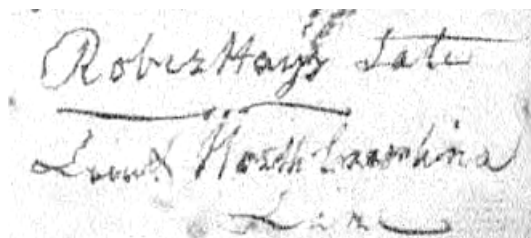 Robert Hays Late
Lieut North Carolina
Line